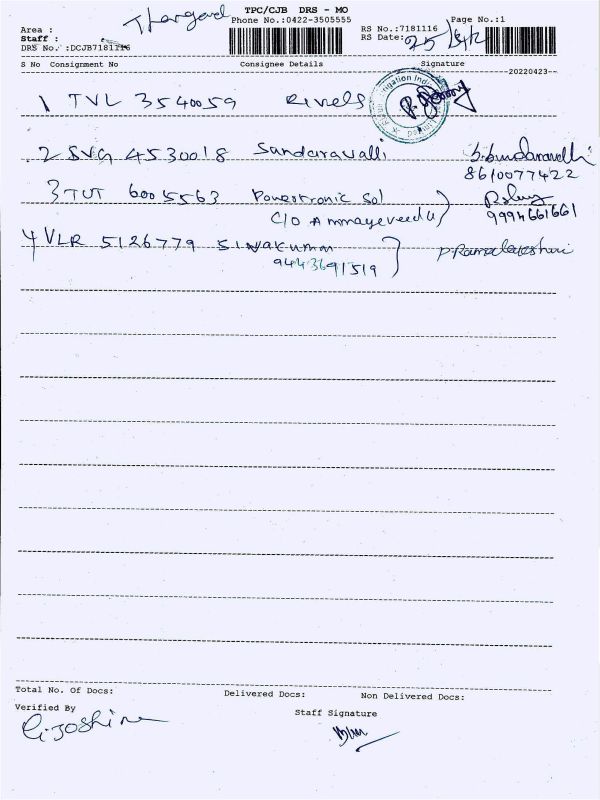 Thangavel
TPC/CJB DRS - MO
Phone No.:0422-3505555
Page No.:1
Area :
Staff :
DRS No. :DCJB7181116
RS No.:7181116
RS Date:
25/4/22
S No Consignment No Consignee Details Signature
20220423
1 TVL 3540059 Rivels
2 SVG 4530018 Sundaravalli
8610077422
3 TUT 6005563 Powertronic Sol
C/O Ammayeveedu
9994661661
4 VLR 5126779 Sivakumar
9443691519
P. Ramalakshmi
Total No. Of Docs: Delivered Docs: Non Delivered Docs:
Verified By
Staff Signature
G. Joshina